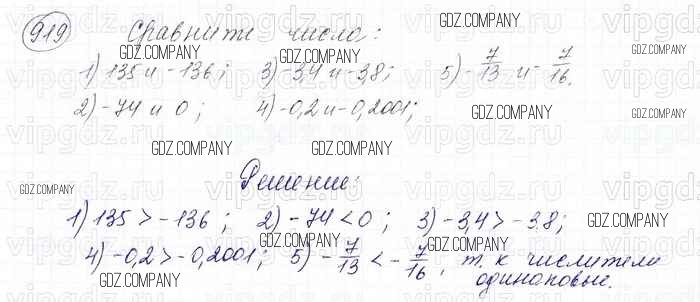 919 Сравните числа:
1) 135 и -136; 3) -3,4 и -3,8; 5) -7/13 и -7/16.
2) -74 и 0; 4) -0,2 и -0,2001;
Решение:
1) 135 > -136; 2) -74 < 0; 3) -3,4 > -3,8;
4) -0,2 > -0,2001; 5) -7/13 < -7/16, т. к числители
одинаковые.
GDZ.COMPANY
GDZ.COMPANY
GDZ.COMPANY
GDZ.COMPANY
GDZ.COMPANY
GDZ.COMPANY
GDZ.COMPANY
GDZ.COMPANY
GDZ.COMPANY
GDZ.COMPANY
GDZ.COMPANY
GDZ.COMPANY
GDZ.COMPANY
vipgdz.ru vipgdz.ru vipgdz.ru vipgdz.ru